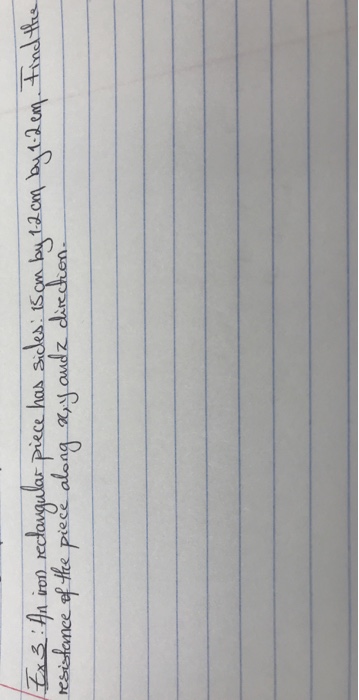 Ex 3: An iron rectangular piece has sides: 15 cm by 1.2 cm by 1.2 cm. Find the
resistance of the piece along x, y and z direction.